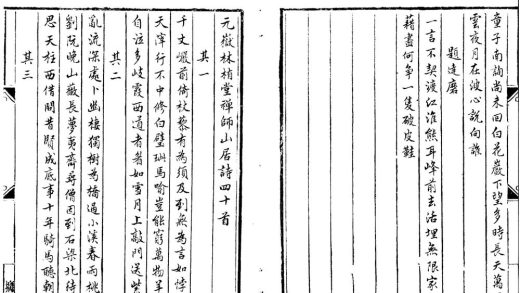 童子南詢尚未回白花巖下望多時長天萬
雲夜月在波心說向誰
題達磨
一言不契渡江淮熊耳峰前去活埋無限家
藉盡何爭一隻破皮鞋
元嶽林栯堂禪師山居詩四十首
其一
千丈巖前倚杖藜有為須及到無為言如悖
天滓行不中修白璧玼馬喻豈能窮萬物羊
自泣多岐霞西道者眉如雪月上敲門送紫
其二
亂流深處卜幽棲獨樹為橋過小溪春雨桃
劉阮晚山薇長夢夷齊尋僧因到石梁北待
思天柱西借問昔賢成底事十年騎馬聽朝
其三